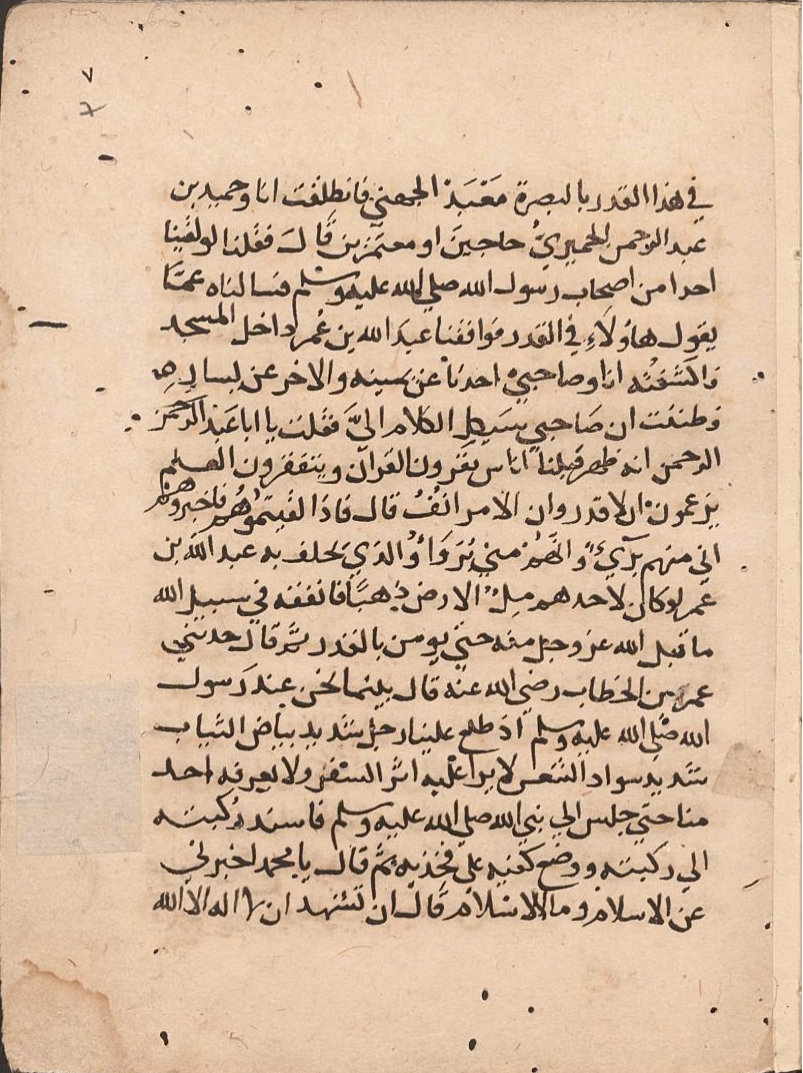 ٧
في هذا القدر بالبصرة مَعْبَدْ الجهني فانطلقت انا وحميد بن
عبد الرحمن الحميريُّ حاجينَ او معتمرين قَالَ فقلنا لو لقينا
احدا من اصحاب رسول الله صلي الله عليه وسلم فسالناه عمَّا
يقول هاوُلَاءِ في القدر فوافقنا عبدَ الله بن عُمرَ داخل المسجد
فاكتنفتُه انا وصاحبيْ احدنَا عن يمينه والاخر عن يساره
فظننت ان صَاحبي سَيكل الكلام اليَّ فقلت يا ابا عَبد الرَّحمن
الرحمن انه ظهر قبلنا اناس يَقرون القرآن ويتقفرون العلم
يزعمون ان لا قدر وان الامر انُفُ قال فاذا لقيتموُهُم فاخبروهُم
اني منهم بَرَيءٌ وانَّهُمْ مني بُرَوَاءُ والذي يحلف به عبد الله بن
عمر لو كان لاحدهم مِلءُ الارض ذهبًا فانفقه في سبيل الله
ما قبل الله عز وجل منه حتي يومن بالقدر ثم قال حدثني
عمر بن الخطاب رضي الله عنه قال بينما نحن عند رَسول
الله صَلي الله عليه وسلم اذ طلع علينا رجل شديد بياض الثياب
شديد سواد الشعر لا يرا عليه اثر السفر ولا يعرفه احد
منا حتي جلس الي نبي الله صلي الله عليه وسلم فاسند رُكبتيه
الي ركبتيه ووضع كفيه علي فخذيه ثمَّ قال يا محمد اخبرني
عن الاسلام وما الاسْلامُ قَال ان تشهد ان لا اله الا الله